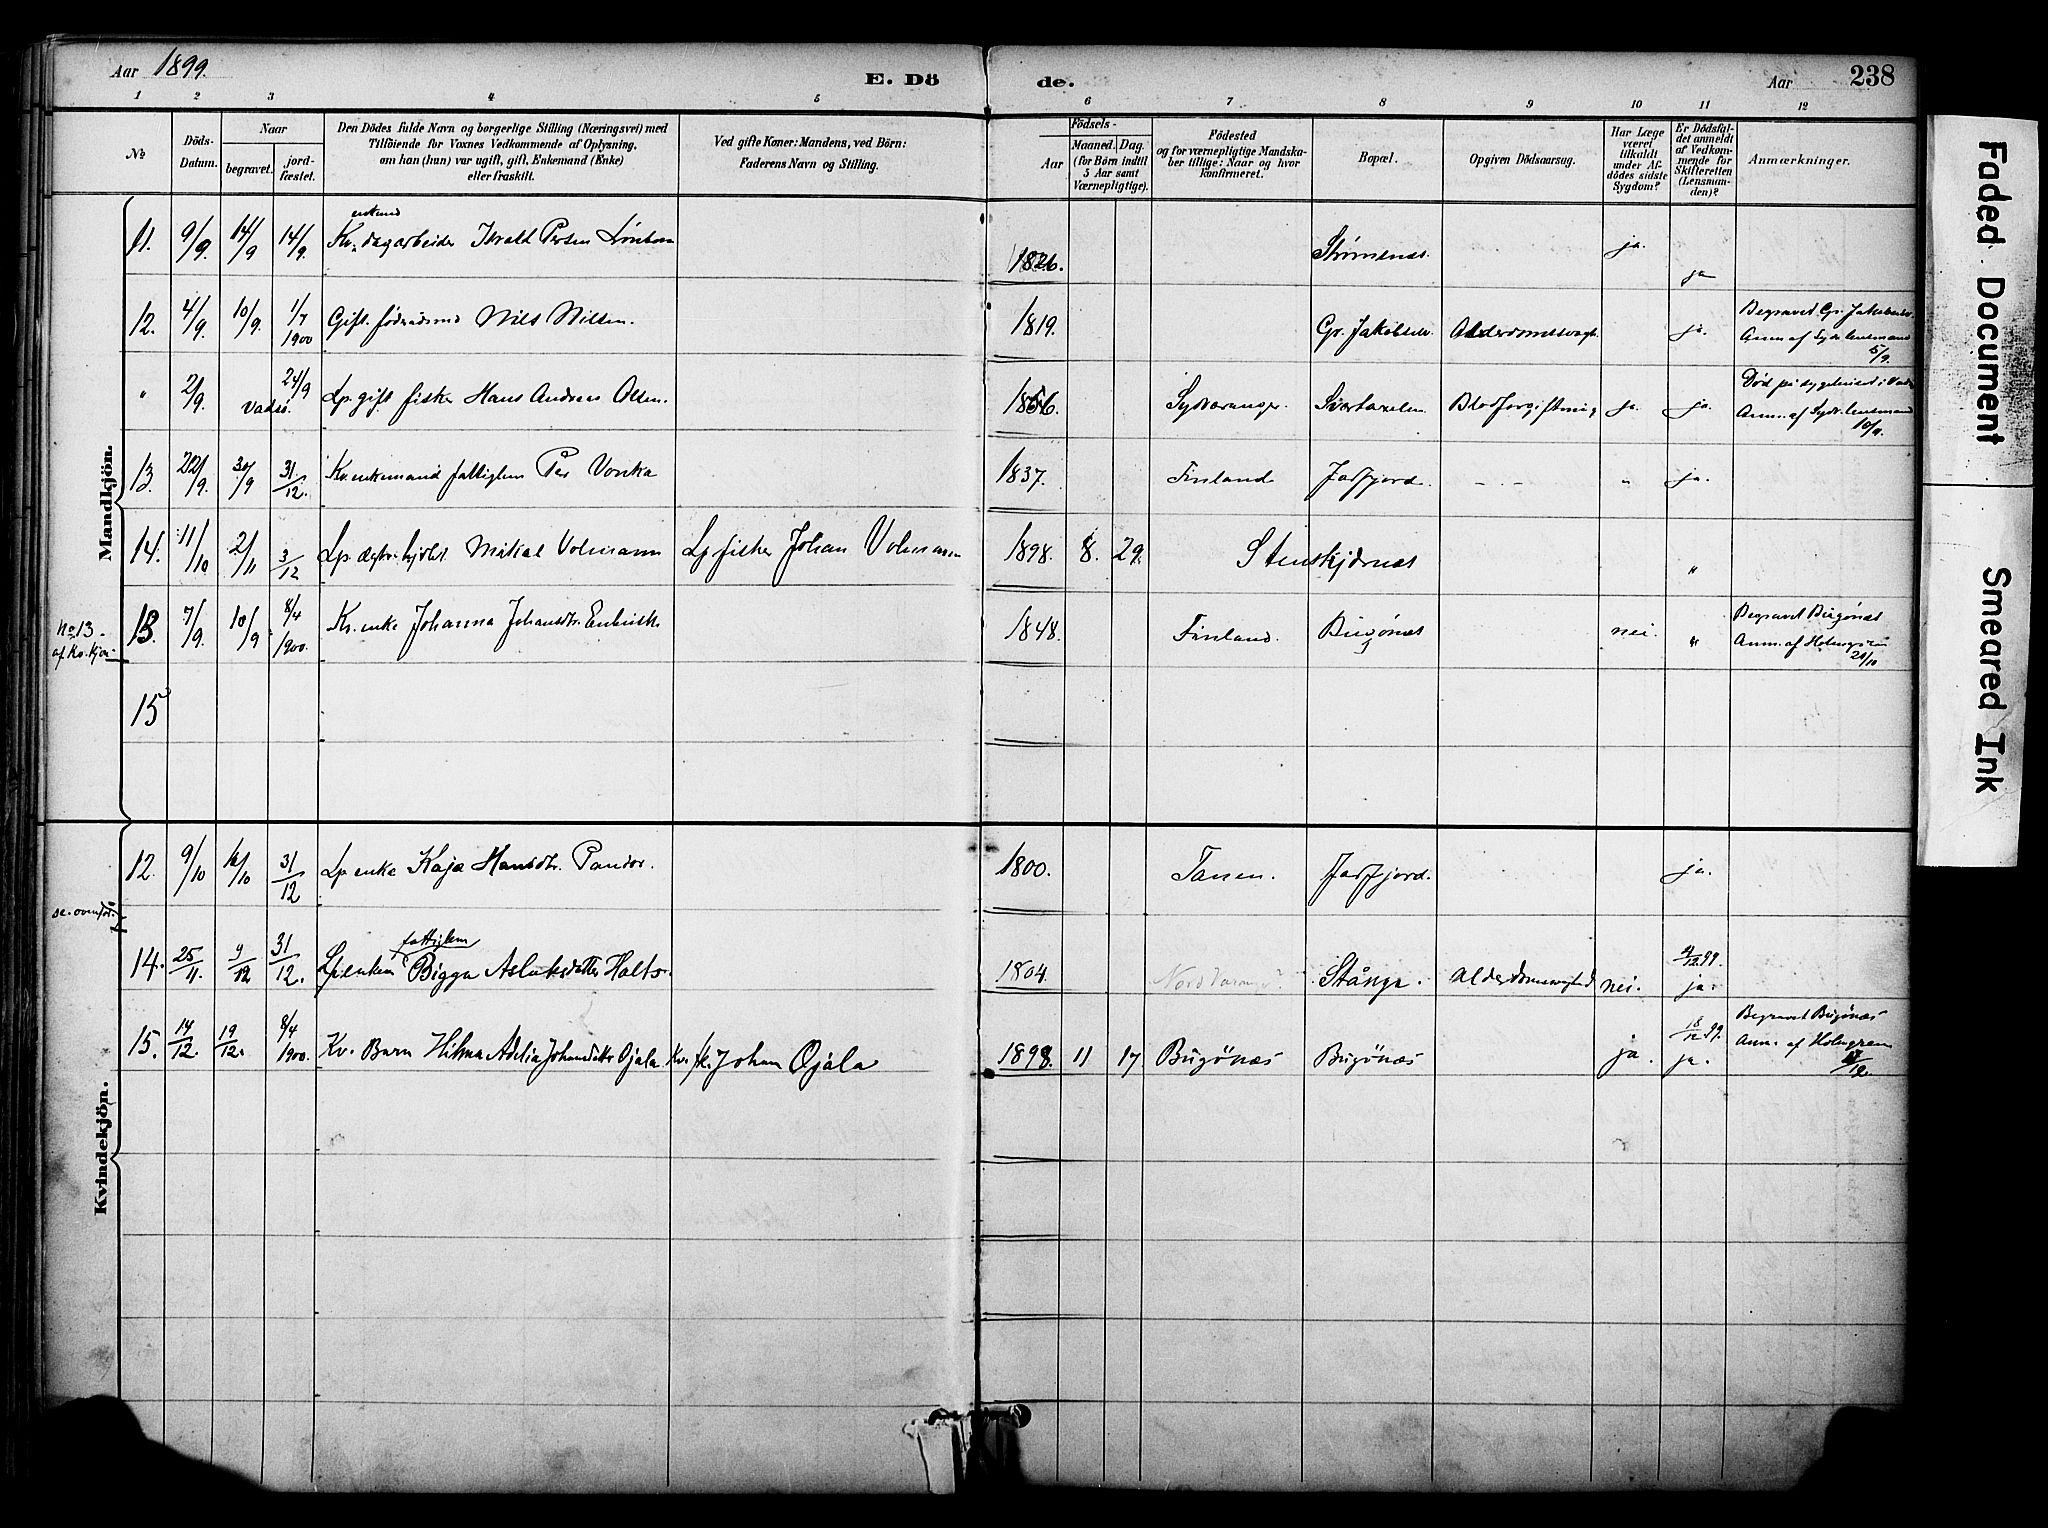 Aar 1899.
E. Dö
de.
Aar
238
1 2 3 4 5 6 7 8 9 10 11 12
No
Döds-Datum.
Naar
begravet.
jord-fæstet.
Den Dödes fulde Navn og borgerlige Stilling (Næringsvei) med
Tilföiende for Voxnes Vedkommende af Oplysning,
om han (hun) var ugift, gift, Enkemand (Enke)
eller fraskilt.
Ved gifte Koner: Mandens, ved Börn:
Faderens Navn og Stilling.
Födsels-
Aar
Maaned. Dag.
(for Börn indtil
5 Aar samt
Værnepligtige).
Födested
og for værnepligtige Mandska-
ber tillige: Naar og hvor
konfirmeret.
Bopæl.
Opgiven Dödsaarsag.
Har Læge
været
tilkaldt
under Af-
dödes sidste
Sygdom?
Er Dödsfal-
det anmeldt
af Vedkom-
mende for
Skifteretten
(Lensman-
den)?
Anmærkninger.
Mandkjön.
11. 9/9. 14/9 14/9. Kv. dagarbeider 1826. Strømenæs. ja. ja
12. 4/9. 10/9. 1/7 1900 Gift. föderådsmd Nils Nilsen. 1819. Gr. Jakobselv. Alderdomssvagh. ja. Begravet Gr. Jakobselv.
Anm. af Sydv. lensmand
5/9.
" 2/9. Vadsö. 24/9 Lp. gift fisker Hans Andreas Olsen. Sydvaranger. Svartaxelen. Blodforgiftning ja. ja. Död på sygehuset i Vadsö
Anm. af Sydv. lensmand
13. 22/9. 30/9 31/12. Kv. enkemand fattiglem Per Vonka 1837. Finland Jarfjord. - . - " ja.
14. 11/10 2/11 3/12 Mikal Volmann Lp fisker Johan Volmann 1898. 8. 29. Stenskjærnæs "
No 13 -
af Kv. kjön
13. 7/9. 10/9 8/4 1900. Kv. enke Johanna Johansdtr. 1848. Finland. Bugönæs nei. " Begravet Bugönæs
Anm. af Holmgren
21/10
15
Kvindekjön.
12. 9/10 16/10 31/12 Lp enke Kaja Hansdtr. 1800. Tanen. Jarfjord. ja.
se ovenfor
14. 25/11. 9/12 31/12. Lp enken fattiglem Bigga Aslaksdatter Halts. 1804. Nord Varanger? Stånga. Alderdomssvaghed nei. ja.
15. 14/12. 19/12. 8/4 1900. Kv. Barn Hilma Adelia Johansdatter Ojala. Kv. fsk. Johan Ojala 1898. 11 17. Bugönæs Bugönæs ja. 18/12 99. ja. Begravet Bugönæs
Anm. af Holmgren
Faded Document
Smeared Ink